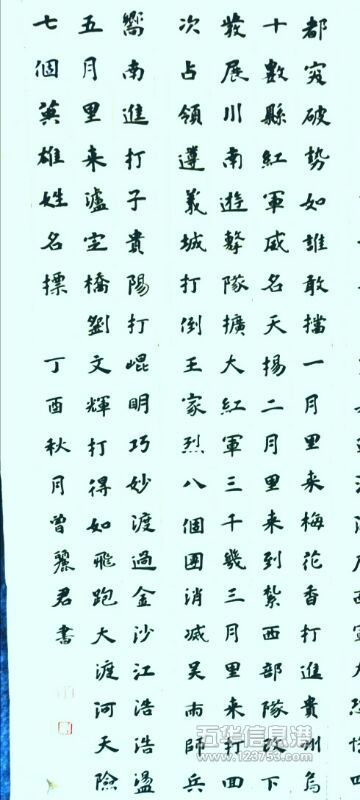 都突破勢如誰敢擋一月里来梅花香打進貴州烏
十數縣紅軍威名天揚二月里来到紮西部隊改下
發展川南遊擊隊擴大紅軍三千幾三月里来打回
次占領遵義城打倒王家烈八個團消滅吴雨師兵
嚮南進打子貴陽打崐明巧妙渡過金沙江浩浩盪
五月里来瀘定橋劉文輝打得如飛跑大渡河天險
七個英雄姓名標 丁酉秋月曾麗君書
五华信息港